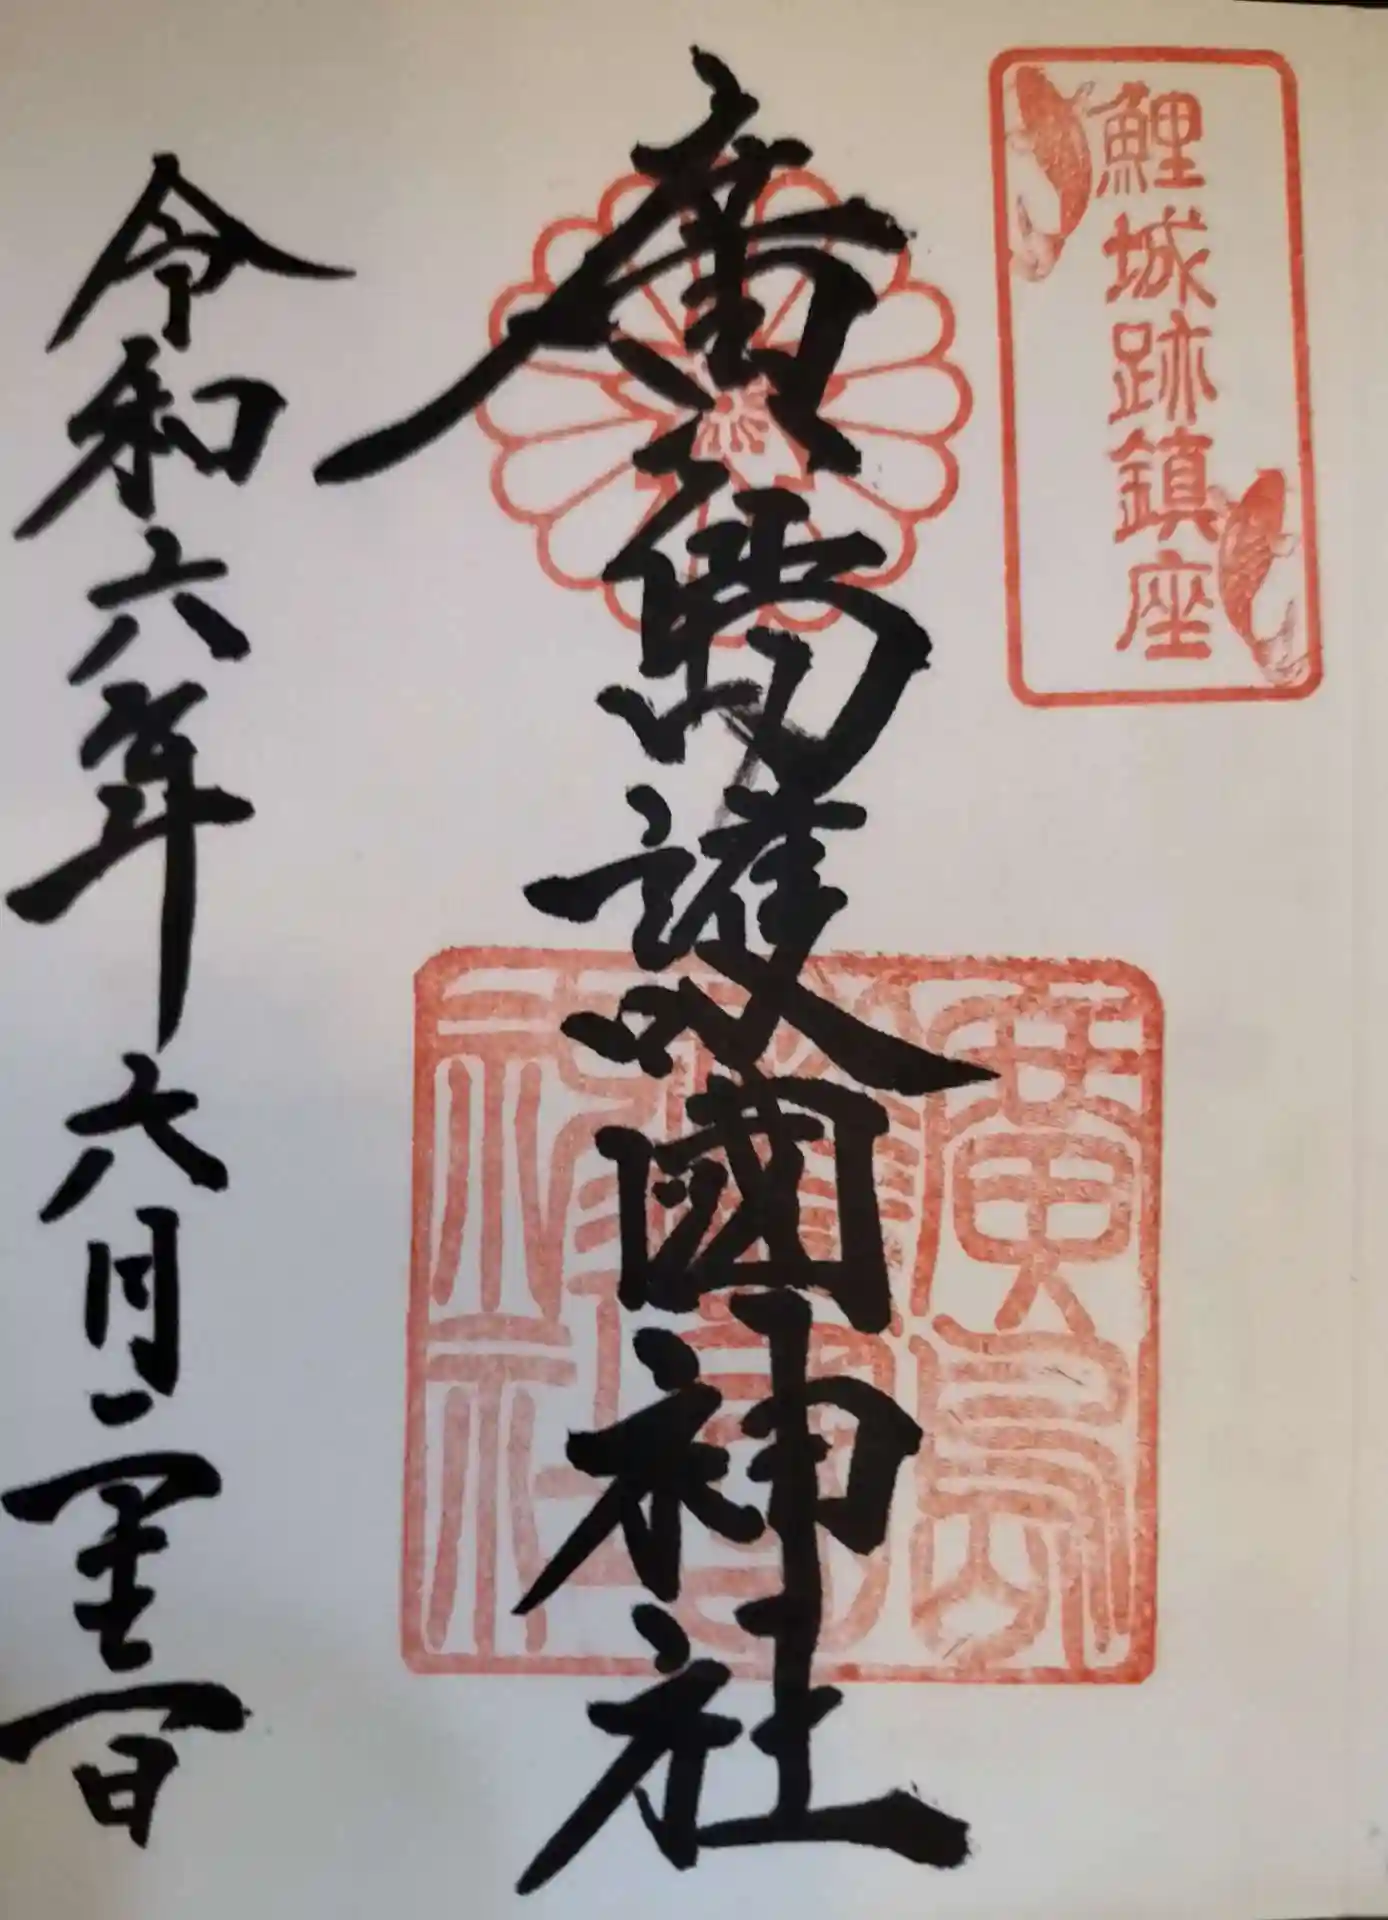 鯉城跡鎮座
廣島護國神社
廣島
護國
神社
令和六年六月二十日